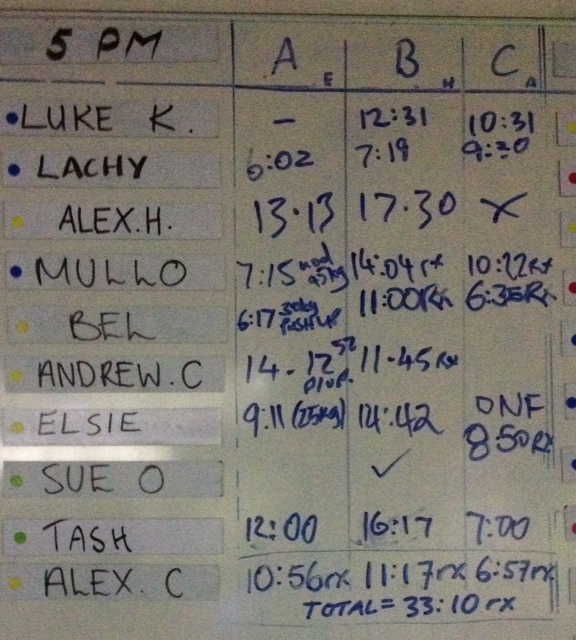 5 PM A E B H C A
LUKE K. – 12:31 10:31
LACHY 6:02 7:19 9:20
ALEX.H. 13.13 17.30 X
MULLO 7:15 14:04 rx 10:22Rx
BEL 6:17 30kg PUSH UP 11:00Rx 6:35Rx
ANDREW.C 14.12 11.45 Rx
ELSIE 9:11 (25kg) 14:42 DNF
8:50Rx
SUE O ✓
TASH 12:00 16:17 7:00
ALEX. C 10:56rx 11:17rx 6:57rx
TOTAL = 33:10 rx